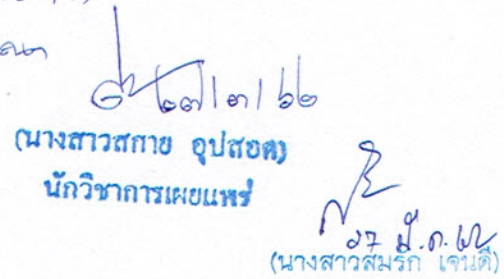 ๒๗/๓/๖๒
(นางสาวสกาย อุปสอด)
นักวิชาการเผยแพร่
๒๗ มี.ค. ๖๒
(นางสาวสมรัก เจนดี)